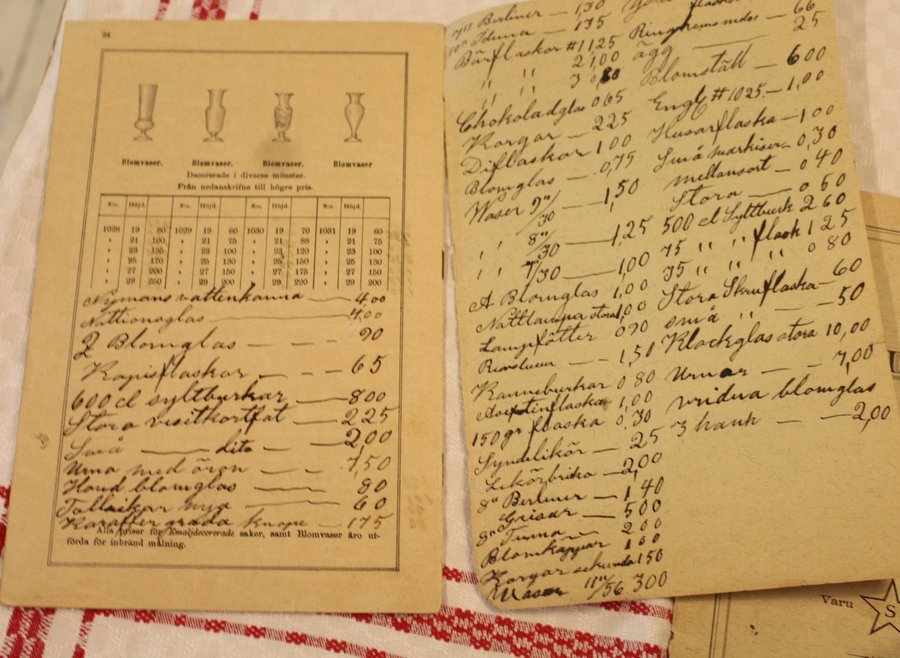 24
Blomvaser. Blomvaser. Blomvaser. Blomvaser
Decorerade i diverse mönster.
Från nedanskrifne till högre pris.
N:o. Höjd. N:o. Höjd. N:o. Höjd. N:o. Höjd.
1028 19 80 1029 19 60 1030 19 70 1031 19 60
" 21 100 " 21 75 " 21 88 " 21 75
" 23 135 " 23 100 " 23 120 " 23 100
" 25 170 " 25 130 " 25 150 " 25 130
" 27 200 " 27 150 " 27 175 " 27 150
" 29 250 " 29 200 " 29 " 29 200
Nymans vattenkanna — 4,00
Nattionaglas — 4,00
2 Blomglas — 90
Kapisflaskor — 65
600 cl syltburkar — 800
Stora visitkortfat — 225
Små — dito — 2,00
Urna med öron — 1,50
Hand blomglas — 80
Tallrikar nya — 60
Karaffer grada knopp — 175
Alla priser för Emaljdecorerade saker, samt Blomvaser äro ut-
förda för inbränd målning.
7" Berliner — 1,30
10" Iduna — 175
Bärflaskor #1 1,25
" " 2 1,00
" " 3 0,80
Chokoladglas 0 65
Korgar — 225
Diflaskor 1 00
Blomglas — 0,75
Waser 9"/30 — 1,50
" 8"/30 — 1,25
" " 7"/30 — 1,00
A Blomglas 1,00
Nattlampa stora 1,00
Lampfötter 0 90
— 1,50
Kanneburkar 0 80
1,00
150 gr flaska 0,30
Syndelikör — 25
Likörbricka — 2,00
8" Berliner — 1 40
Grisar — 500
8" — 200
Blomkappar 1 60
Korgar sekunda 1 50
Waser 11"/56 3 00
flaskor
66
ägg — 25
Blomställ — 600
Engl # 1025 — 1,00
Husarflaska — 1 00
Små markiser — 0,30
mellansort — 0 40
Stora — 0 50
500 cl Syltburk 2 60
75 " " flask 1 25
35 " " " 0 80
Stora Skruflaska — 60
små " — 50
Klockglas stora 10,00
Urnor — — 7,00
vridna blomglas
3 hank — — 2,00
Varu
S